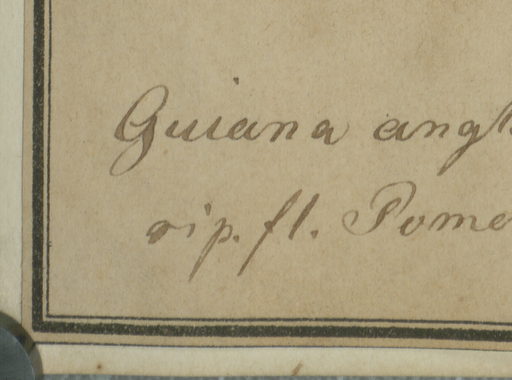 Guiana angl
rip. fl. Pome